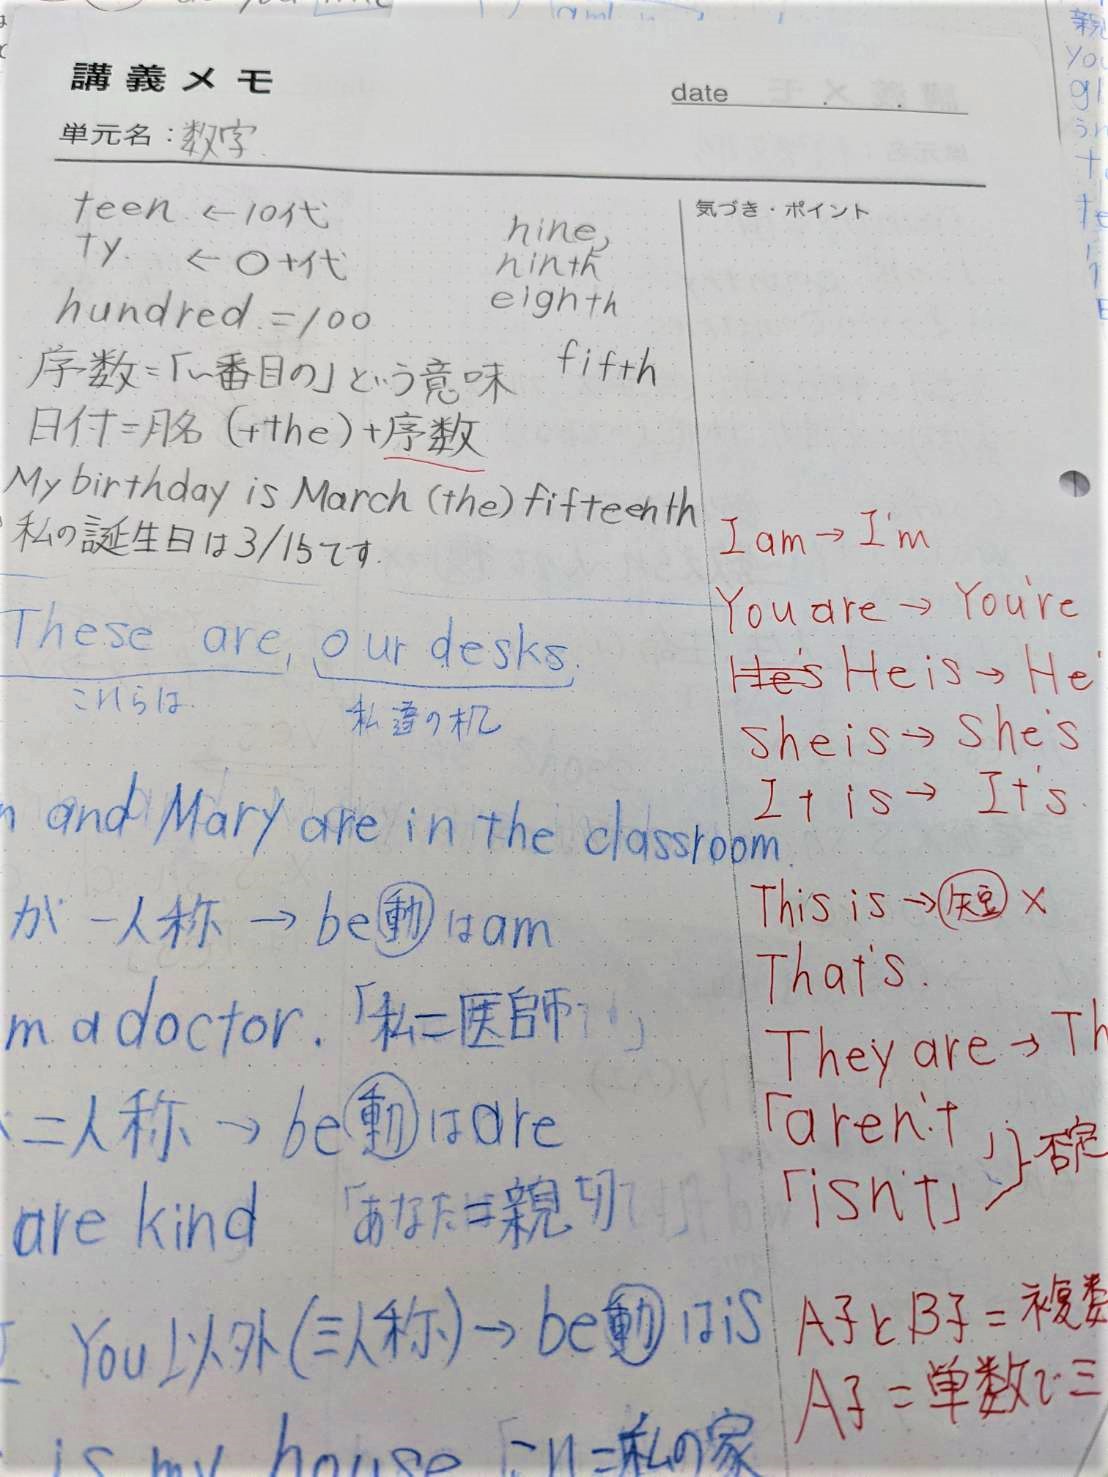 講義メモ
date
単元名：数字
teen ←10代
ty. ←〇十代
hundred = 100
nine,
ninth
eighth
fifth
序数=「〜番目の」という意味
日付=月名 (+the)+序数
My birthday is March (the) fifteenth
私の誕生日は3/15です.
気づき・ポイント
These are, our desks.
これらは
私達の机
and Mary are in the classroom.
が 一人称 → be動はam
m a doctor. 「私=医師
二人称 → be動はare
are kind 「あなた=親切
I. You以外(三人称)→ be動はis
is my house 「これ=私の家
I am → I'm
You are → You're
He's He is → He'
she is → she's
It is → It's.
This is → 短 ×
That's.
They are → Th
「aren't
「isn't」 否定
A子とB子=複数
A子=単数で三